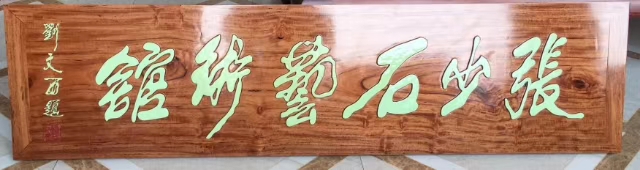 張少石藝術館
劉文西題